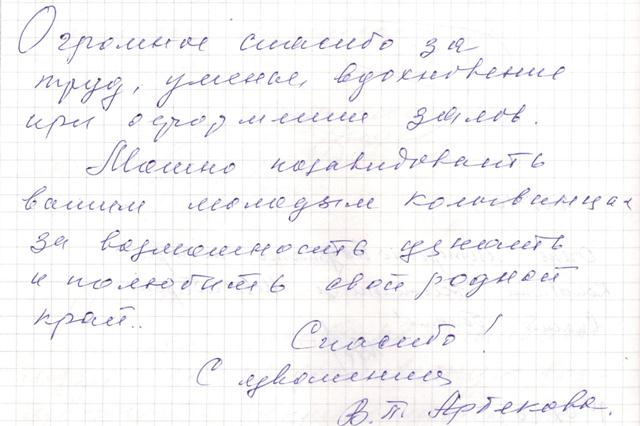 Огромное спасибо за
труд, уменье, вдохновение
при оформлении залов.
Можно позавидовать
вашим молодым колыванцам
за возможность узнать
и полюбить свой родной
край..
Спасибо!
С уважением
В.Т. Артекова.